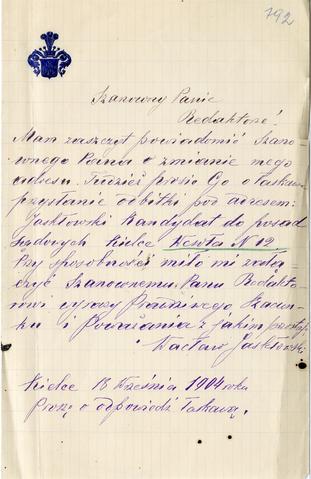 792
Szanowny Panie
Redaktorze!
Mam zaszczyt powiadomić Szano-
wnego Pana o zmianie mego
adresu. Tudzież proszę Go o łaskawe
przysłanie odbitki pod adresem:
Jasktowski Kandydat do posad
Sądowych Kielce Wesoła N 12.
Przy sposobności miło mi zało-
czyć Szanownemu Panu Redakto-
rowi wyrazy Prawdziwego Szacun-
ku i Poważania z jakim
Wacław
Kielce 18 Września 1904 roku
Proszę o odpowiedź łaskawą.